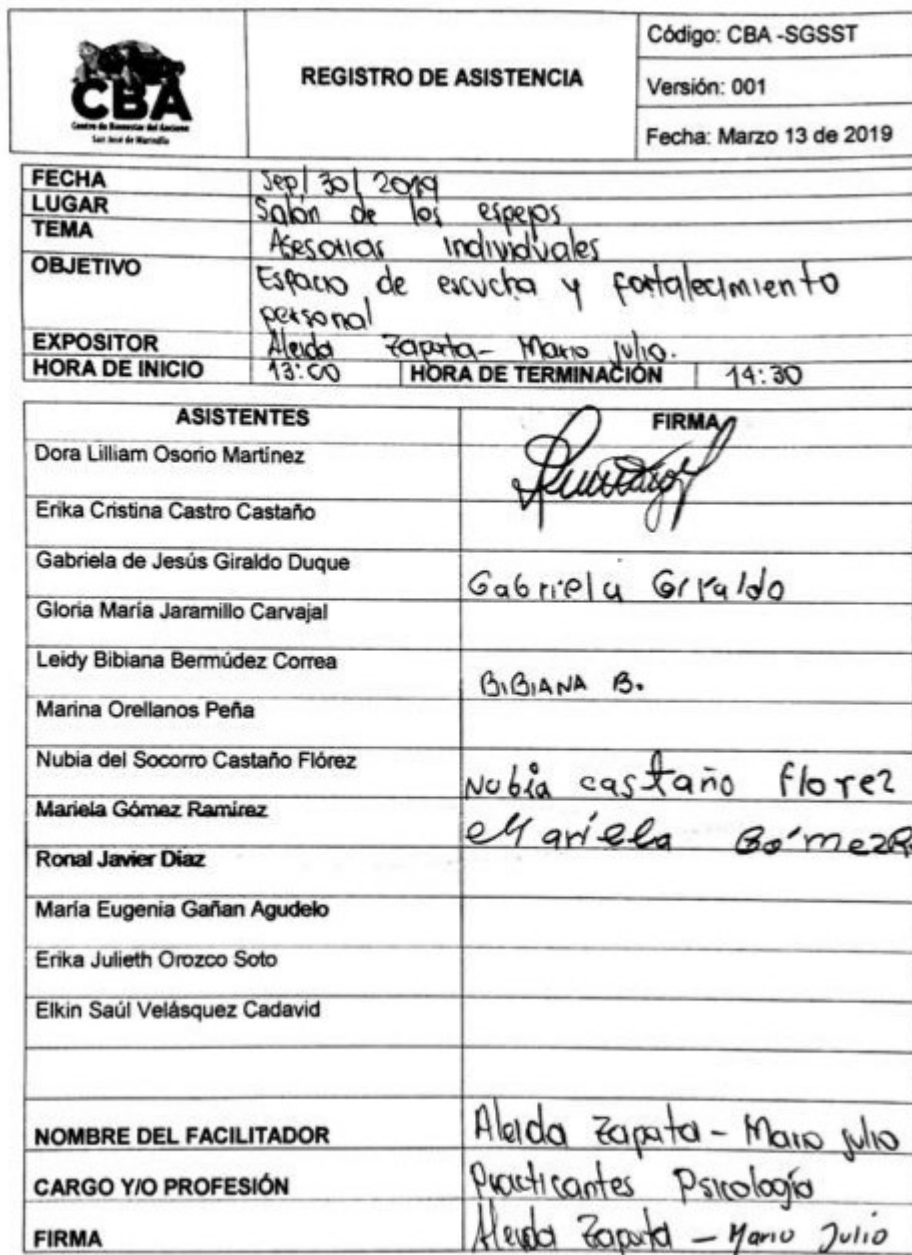 CBA
Centro de Bienestar del Anciano
San José de Marinilla
REGISTRO DE ASISTENCIA
Código: CBA -SGSST
Versión: 001
Fecha: Marzo 13 de 2019
FECHA Sep/ 30/ 2019
LUGAR Salón de los espejos
TEMA Asesorias individuales
OBJETIVO Espacio de escucha y fortalecimiento
personal
EXPOSITOR Aleida Zapata - Mario Julio.
HORA DE INICIO 13:00 HORA DE TERMINACIÓN 14:30
ASISTENTES FIRMA
Dora Lilliam Osorio Martínez
Erika Cristina Castro Castaño
Gabriela de Jesús Giraldo Duque Gabriela Giraldo
Gloria María Jaramillo Carvajal
Leidy Bibiana Bermúdez Correa BIBIANA B.
Marina Orellanos Peña
Nubia del Socorro Castaño Flórez Nubia castaño florez
Mariela Gómez Ramírez Mariela Gómez R.
Ronal Javier Diaz
María Eugenia Gañan Agudelo
Erika Julieth Orozco Soto
Elkin Saúl Velásquez Cadavid
NOMBRE DEL FACILITADOR Aleida Zapata - Mario Julio
CARGO Y/O PROFESIÓN Practicantes Psicología
FIRMA Aleida Zapata - Mario Julio